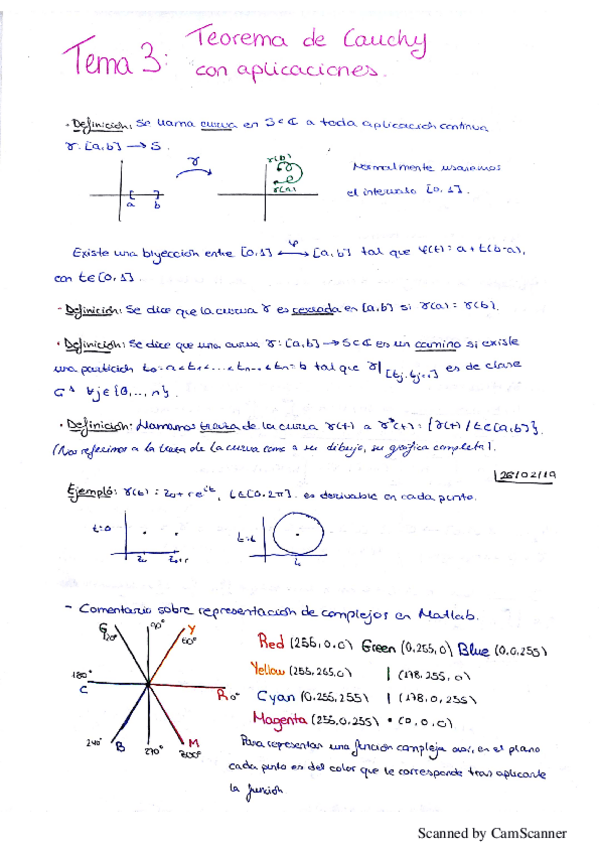 Tema 3: Teorema de Cauchy
con aplicaciones.
· Definición: Se llama curva en S⊂ℂ a toda aplicación continua
γ: [a,b] → S.
γ
γ(b)
γ(a)
a b
Normalmente usaremos
el intervalo [0,1].
Existe una biyección entre [0,1] ⟷φ [a,b] tal que φ(t): a+t(b-a),
con t∈[0,1].
- Definición: Se dice que la curva γ es cerrada en [a,b] si γ(a)=γ(b).
· Definición: Se dice que una curva γ: [a,b] → S⊂ℂ es un camino si existe
una partición t₀=a<t₁<...<tₙ=b tal que γ|[tj,tj+1] es de clase
C¹ ∀j∈{0,...,n}.
· Definición: Llamamos traza de la curva γ(t) a γ*(t): {γ(t)/t∈[a,b]}.
(Nos referimos a la traza de la curva como a su dibujo, su gráfica completa).
26/02/19
Ejemplo: γ(t): z₀+re^it, t∈[0,2π]. es derivable en cada punto.
t=0
z₀ z₀+r
z₀
- Comentario sobre representación de complejos en Matlab.
G 120° 90° Y 60°
180° C
R 0°
240° B 270° M 300°
Red (255,0,0) Green (0,255,0) Blue (0,0,255)
Yellow (255,255,0) | (178,255,0)
Cyan (0,255,255) | (178,0,255)
Magenta (255,0,255) • (0,0,0)
Para representar una función compleja, en el plano
cada punto es del color que le corresponde tras aplicarle
la función
Scanned by CamScanner